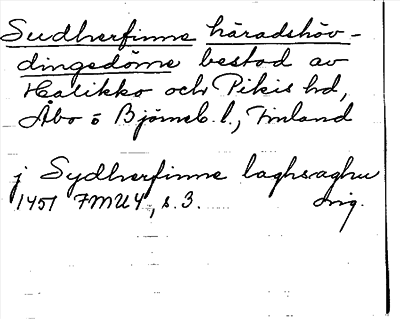 Sudherfinne häradshöv-
dingedöme bestod av
Halikko och Pikis hd,
Åbo o Björneb. l., Finland
j Sydherfinne laghsaghu
1451 FMU4, s. 3. orig.